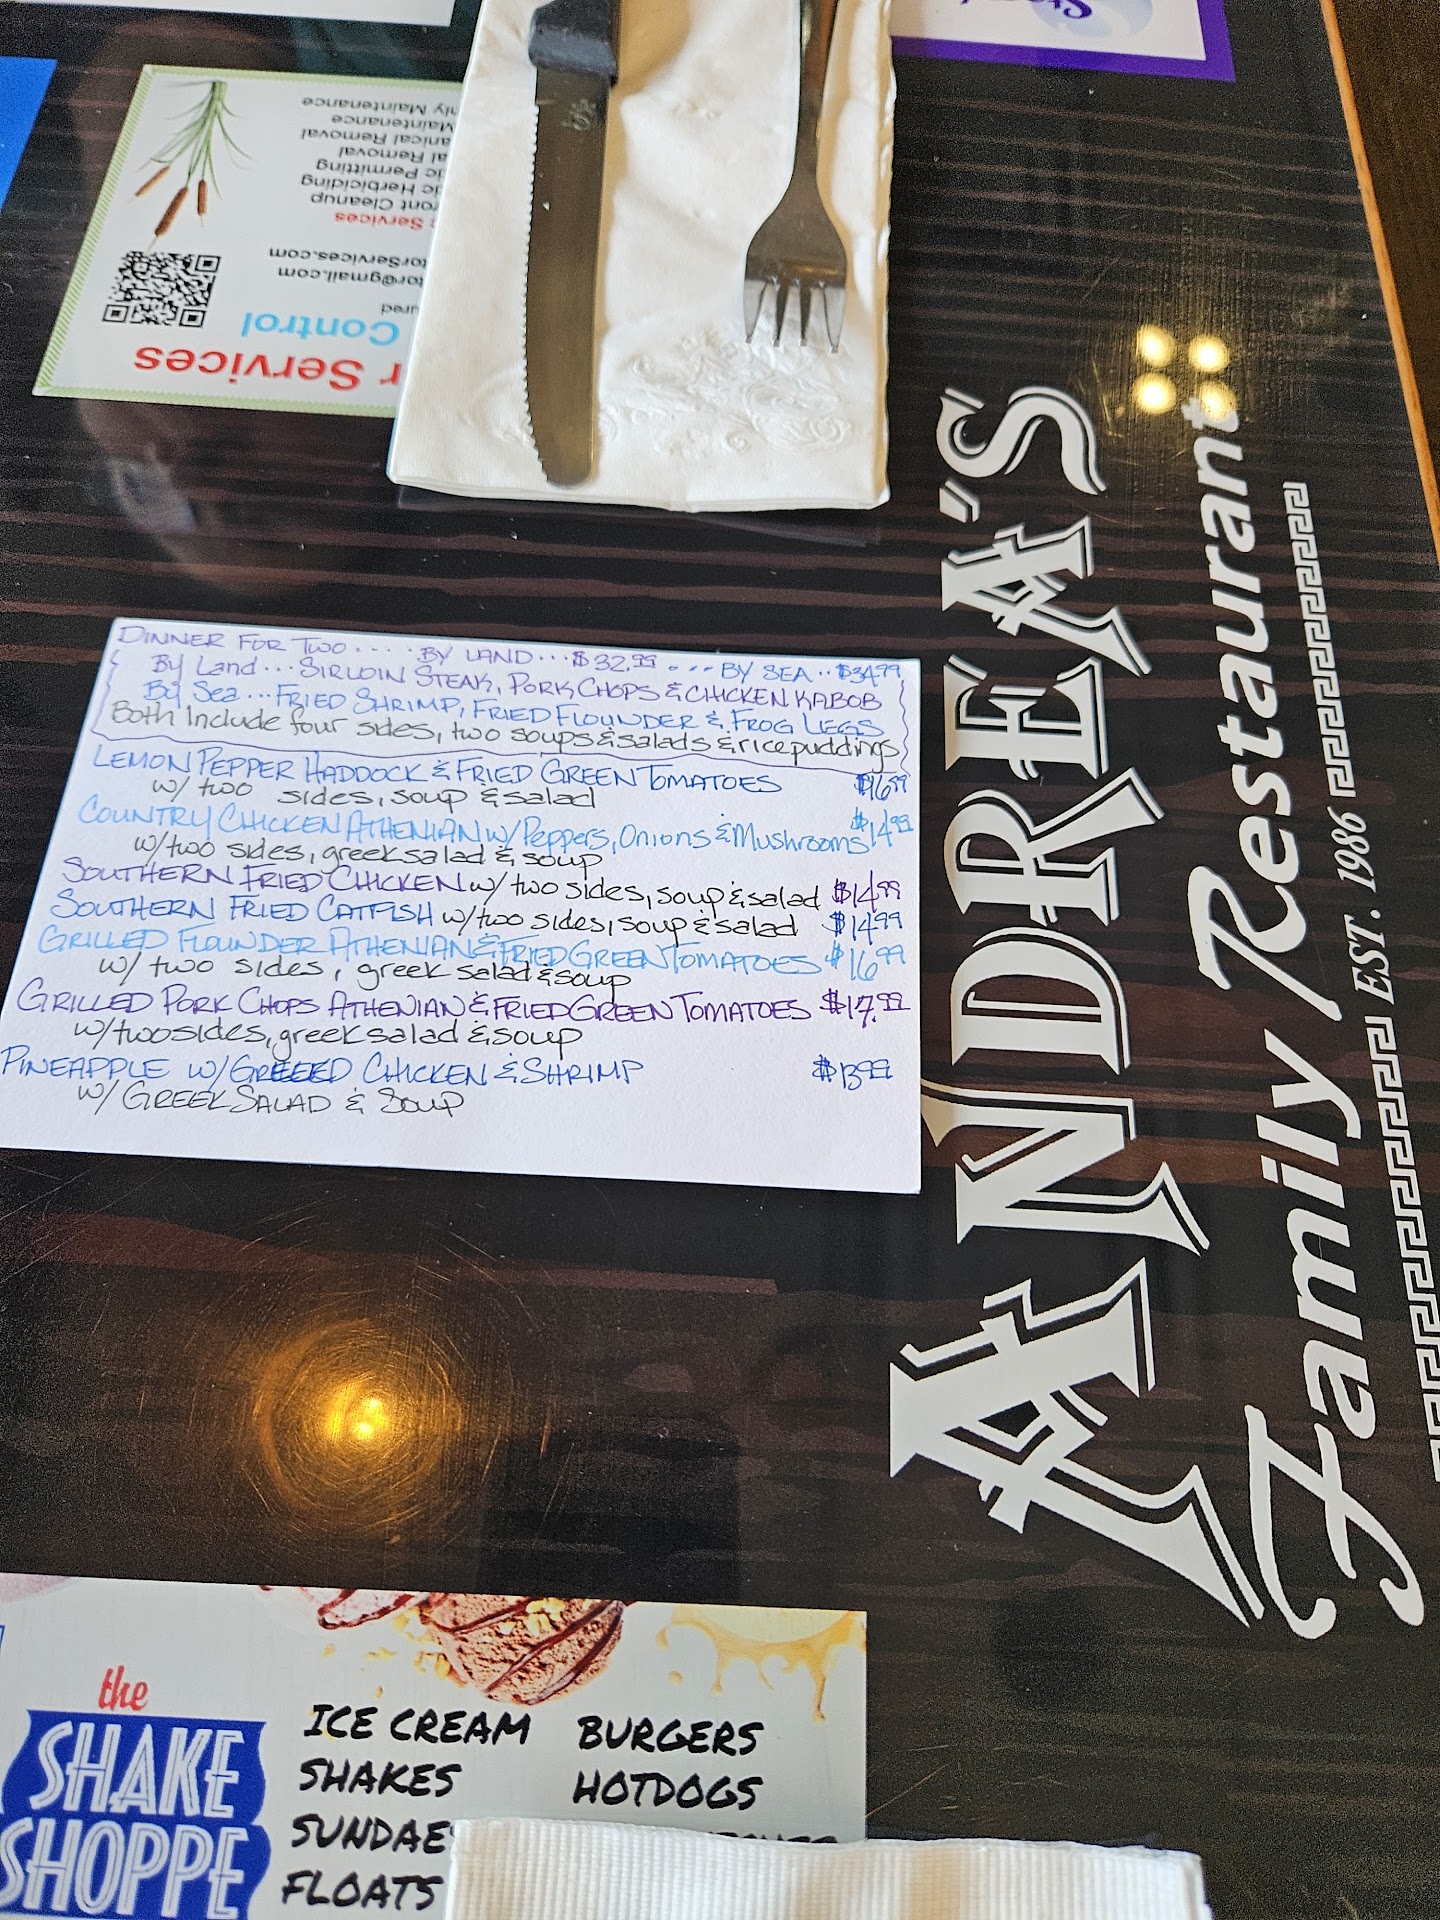 St
r Services
Control
ured
tor@gmail.com
torServices.com
Services
ront Cleanup
ic Herbiciding
ic Permitting
al Removal
anical Removal
Maintenance
hly Maintenance
DINNER FOR TWO.... BY LAND...$32.99 ... BY SEA..$34.99
By Land...SIRLOIN STEAK, PORK CHOPS & CHICKEN KABOB
By Sea...FRIED SHRIMP, FRIED FLOUNDER & FROG LEGS
Both Include four sides, two soups & salads & rice puddings
LEMON PEPPER HADDOCK & FRIED GREEN TOMATOES $16.99
w/ two sides, soup & salad
COUNTRY CHICKEN ATHENIAN w/Peppers, Onions & Mushrooms $14.99
w/two sides, greek salad & soup
SOUTHERN FRIED CHICKEN w/two sides, soup & salad $14.99
SOUTHERN FRIED CATFISH w/two sides, soup & salad $14.99
GRILLED FLOUNDER ATHENIAN & FRIED GREEN TOMATOES $16.99
w/ two sides, greek salad & soup
GRILLED PORK CHOPS ATHENIAN & FRIED GREEN TOMATOES $17.99
w/two sides, greek salad & soup
PINEAPPLE W/ CHICKEN & SHRIMP $13.99
w/ GREEK SALAD & SOUP
ANDREA'S
Family Restaurant
EST. 1986
the
SHAKE
SHOPPE
ICE CREAM
SHAKES
SUNDAE
FLOATS
BURGERS
HOTDOGS